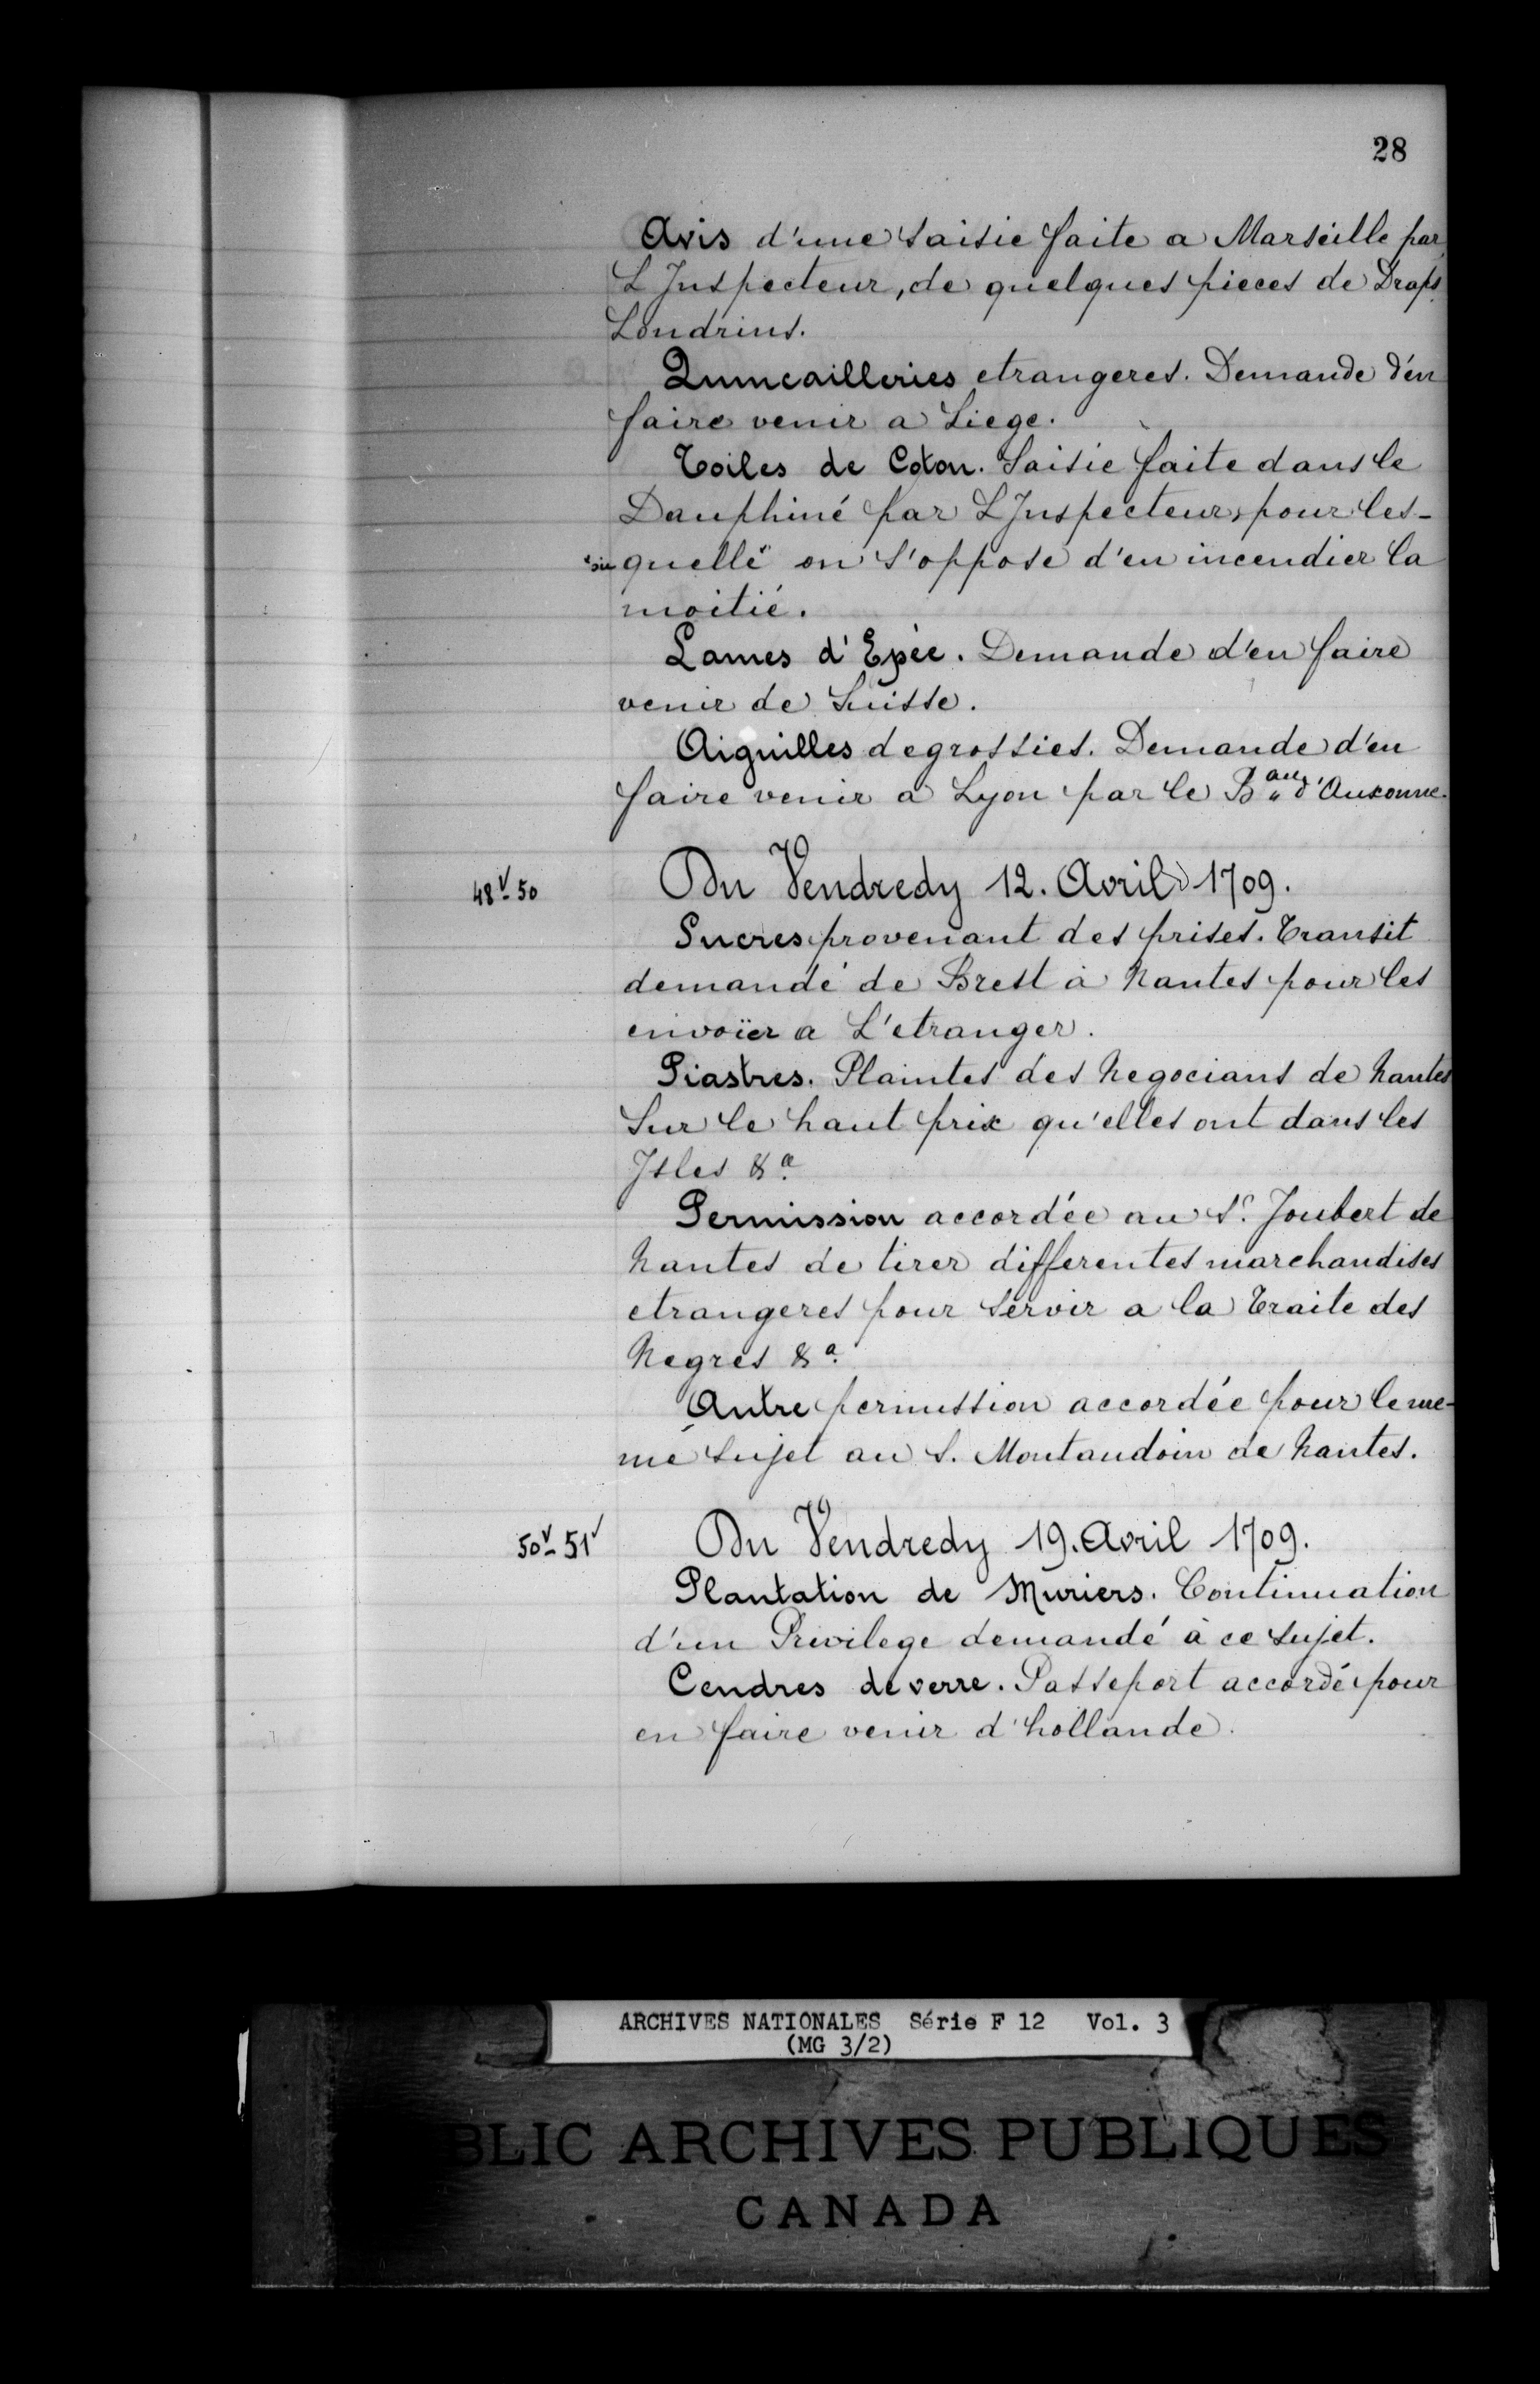 28
Avis d'une saisie faite a Marseille par
L Inspecteur, de quelques pieces de Draps
Londrins.
Quincailleries etrangeres. Demande d'en
faire venir a Liege.
Toiles de Coton. Saisie faite dans le
Dauphiné par L Inspecteur, pour les-
quelle on s'oppose d'en incendier la
moitié.
Lames d'Epée. Demande d'en faire
venir de Suisse.
Aiguilles degrossies. Demande d'en
faire venir a Lyon par le Bau d'Auxonne.
48v-50
Du Vendredy 12. Avril 1709.
Sucres provenant des prises. Transit
demandé de Brest à Nantes pour les
envoïer a L'etranger.
Piastres. Plaintes des Negocians de Nantes
Sur le haut prix qu'elles ont dans les
Isles &a.
Permission accordée au Sr. Joubert de
Nantes de tirer differentes marchandises
etrangeres pour servir a la Traite des
Negres &a.
Autre permission accordée pour le me-
me sujet au S. Montaudoin de Nantes.
50v-51v
Du Vendredy 19. Avril 1709.
Plantation de Muriers. Continuation
d'un Privilege demandé à ce sujet.
Cendres de verre. Passeport accordé pour
en faire venir d'hollande.
ARCHIVES NATIONALES Série F 12 Vol. 3
(MG 3/2)
BLIC ARCHIVES PUBLIQUES
CANADA